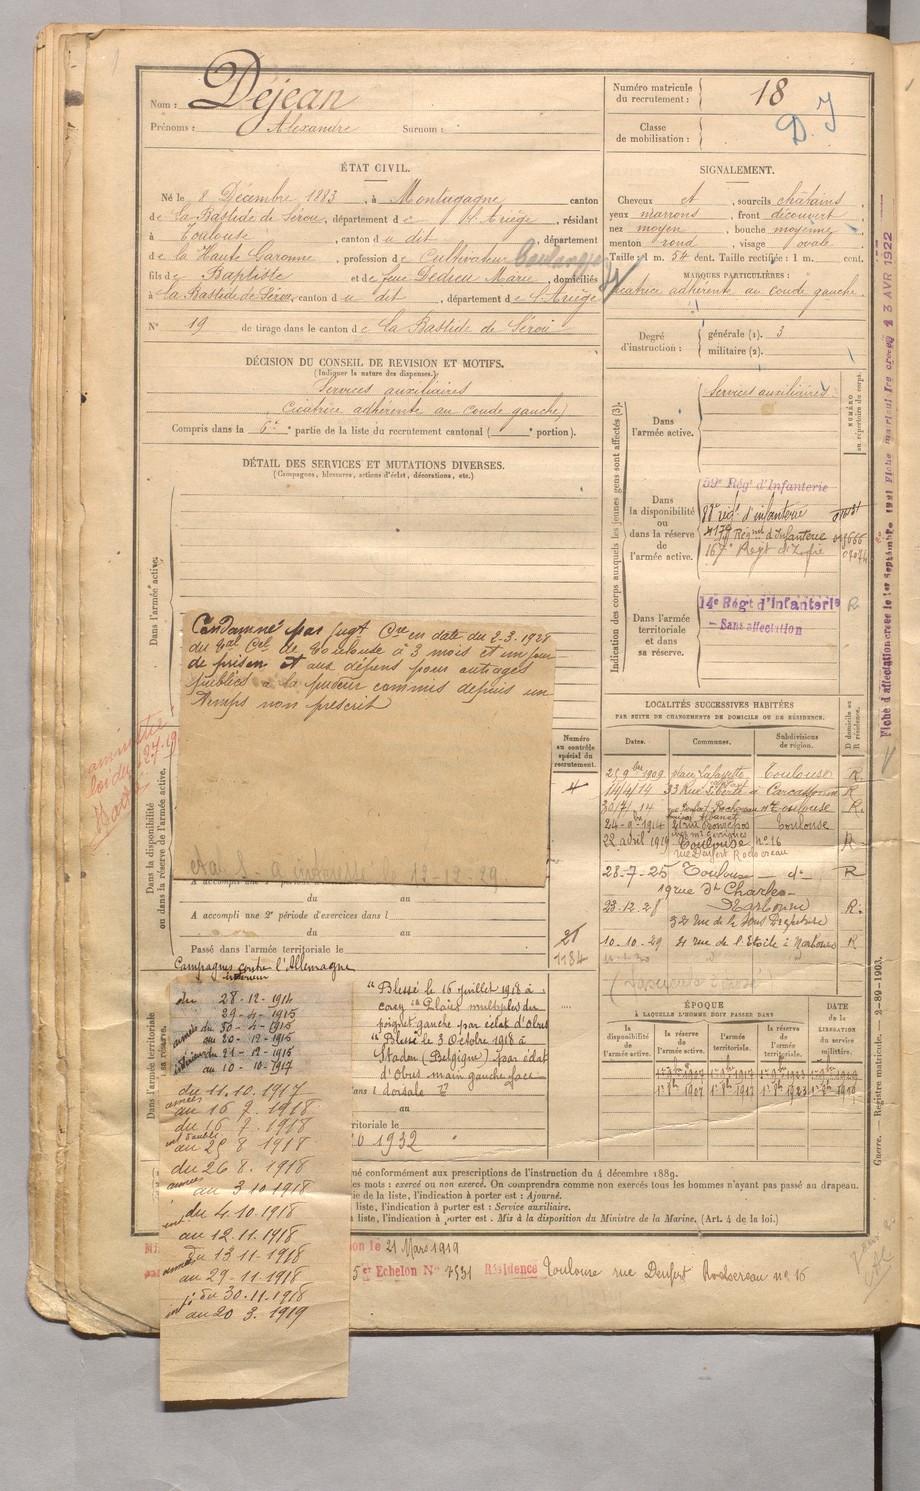 Nom : Déjean
Prénoms : Alexandre Surnom :
Numéro matricule du recrutement : 18
D. J
Classe de mobilisation :
ÉTAT CIVIL.
Né le 8 Décembre 1883, à Montagagne canton
de La Bastide de Sérou, département de l'Ariège, résidant
à Toulouse, canton du dit, département
de la Haute Garonne, profession de Cultivateur boulanger
fils de Baptiste et de feue Dedieu Marie, domiciliés
à La Bastide de Sérou, canton du dit, département de l'Ariège
N° 19 de tirage dans le canton de La Bastide de Sérou
SIGNALEMENT.
Cheveux et, sourcils châtains,
yeux marrons, front découvert,
nez moyen, bouche moyenne,
menton rond, visage ovale
Taille : 1 m. 54 cent. Taille rectifiée : 1 m. cent.
MARQUES PARTICULIÈRES :
Cicatrice adhérente au coude gauche.
Degré d'instruction : générale (1). 3
militaire (2).
DÉCISION DU CONSEIL DE REVISION ET MOTIFS.
(Indiquer la nature des dispenses.)
Services auxiliaires
Cicatrice adhérente au coude gauche
Compris dans la 6e partie de la liste du recrutement cantonal ( e portion).
DÉTAIL DES SERVICES ET MUTATIONS DIVERSES.
(Campagnes, blessures, actions d'éclat, décorations, etc.)
Indication des corps auxquels les jeunes gens sont affectés (3).
NUMÉRO au répertoire du corps.
Dans l'armée active.
Services auxiliaires
Dans la disponibilité ou dans la réserve de l'armée active.
59e Régt d'Infanterie
88e régt d'infanterie
Régmt d'Infanterie
167e Régt d'Infie
Dans l'armée territoriale et dans sa réserve.
14e Régt d'Infanterie R
- Sans affectation
Dans l'armée active.
Condamné par jugt Cre en date du 2-3-1928
du Bal Cel de Toulouse à 3 mois et un jour
de prison et aux dépens pour outrages
publics à la pudeur commis depuis un
temps non prescrit
amnistié
loi du
Dans la disponibilité ou dans la réserve de l'armée active.
Numéro au contrôle spécial du recrutement.
12-12-29
du au
A accompli une 2e période d'exercices dans l
du au
Passé dans l'armée territoriale le
LOCALITÉS SUCCESSIVES HABITÉES
PAR SUITE DE CHANGEMENTS DE DOMICILE OU DE RÉSIDENCE.
Dates. Communes. Subdivisions de région. D domicile ou R résidence.
25 9bre 1909 place Lafayette Toulouse R.
14/4/14 33 Rue Liberté à Carcassonne R
30/7/14 rue Denfert Rochereau Toulouse R.
24-9bre-1914 Toulouse
22 avril 1919 Toulouse n° 16 R
rue Denfert Rochereau
28-7-25 Toulouse - do R
19 rue St Charles
23.12.28 Narbonne R.
32 rue de la Sous Préfecture
10-10-29 4 rue de l'Etoile à Narbonne R
Campagnes contre l'Allemagne
intérieur
du 28-12-1914
29-4-1915
armées du 30-4-1915
au 20-12-1915
intérieur du 21-12-1915
au 10-10-1917
du 11.10.1917
armées
au 15 7. 1918
du 16 7. 1918
int double
au 25 8 1918
du 26 8. 1918
armées
au 3 10 1918
int du 4.10.1918
au 12.11.1918
du 13-11-1918
armées
au 29-11.1918
du 30.11.1918
int au 20 3. 1919
"Blessé le 16 juillet 1918 à
Plaies multiples du
poignet gauche par éclat d'obus
"Blessé le 3 Octobre 1918 à
Staden (Belgique) par éclat
d'Obus main gauche face
dorsale
au
ritoriale le
1932
Dans l'armée territoriale sa réserve.
ÉPOQUE
À LAQUELLE L'HOMME DOIT PASSER DANS
DATE de la LIBÉRATION du service militaire.
la disponibilité de l'armée active. la réserve de l'armée active. l'armée territoriale. la réserve de l'armée territoriale.
ué conformément aux prescriptions de l'instruction du 4 décembre 1889.
es mots : exercé ou non exercé. On comprendra comme non exercés tous les hommes n'ayant pas passé au drapeau.
ie de la liste, l'indication à porter est : Ajourné.
liste, l'indication à porter est : Service auxiliaire.
a liste, l'indication à porter est : Mis à la disposition du Ministre de la Marine. (Art. 4 de la loi.)
on le 21 Mars 1919
5e Echelon N° 7531 Résidence Toulouse rue Denfert Rochereau n° 16
Guerre. — Registre matricule. — 2-89-1903.